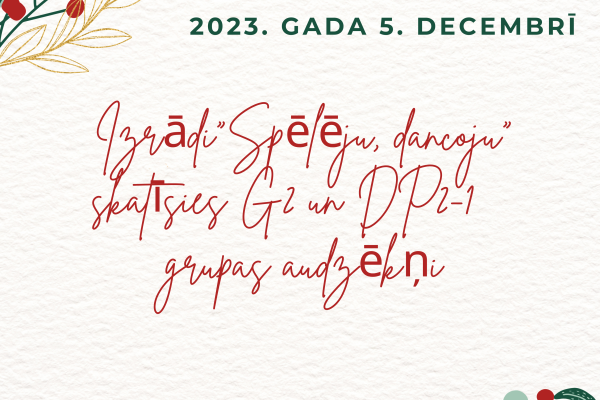 2023. GADA 5. DECEMBRĪ
Izrādi "Spēlēju, dancoju"
skatīsies G2 un DP2-1
grupas audzēkņi